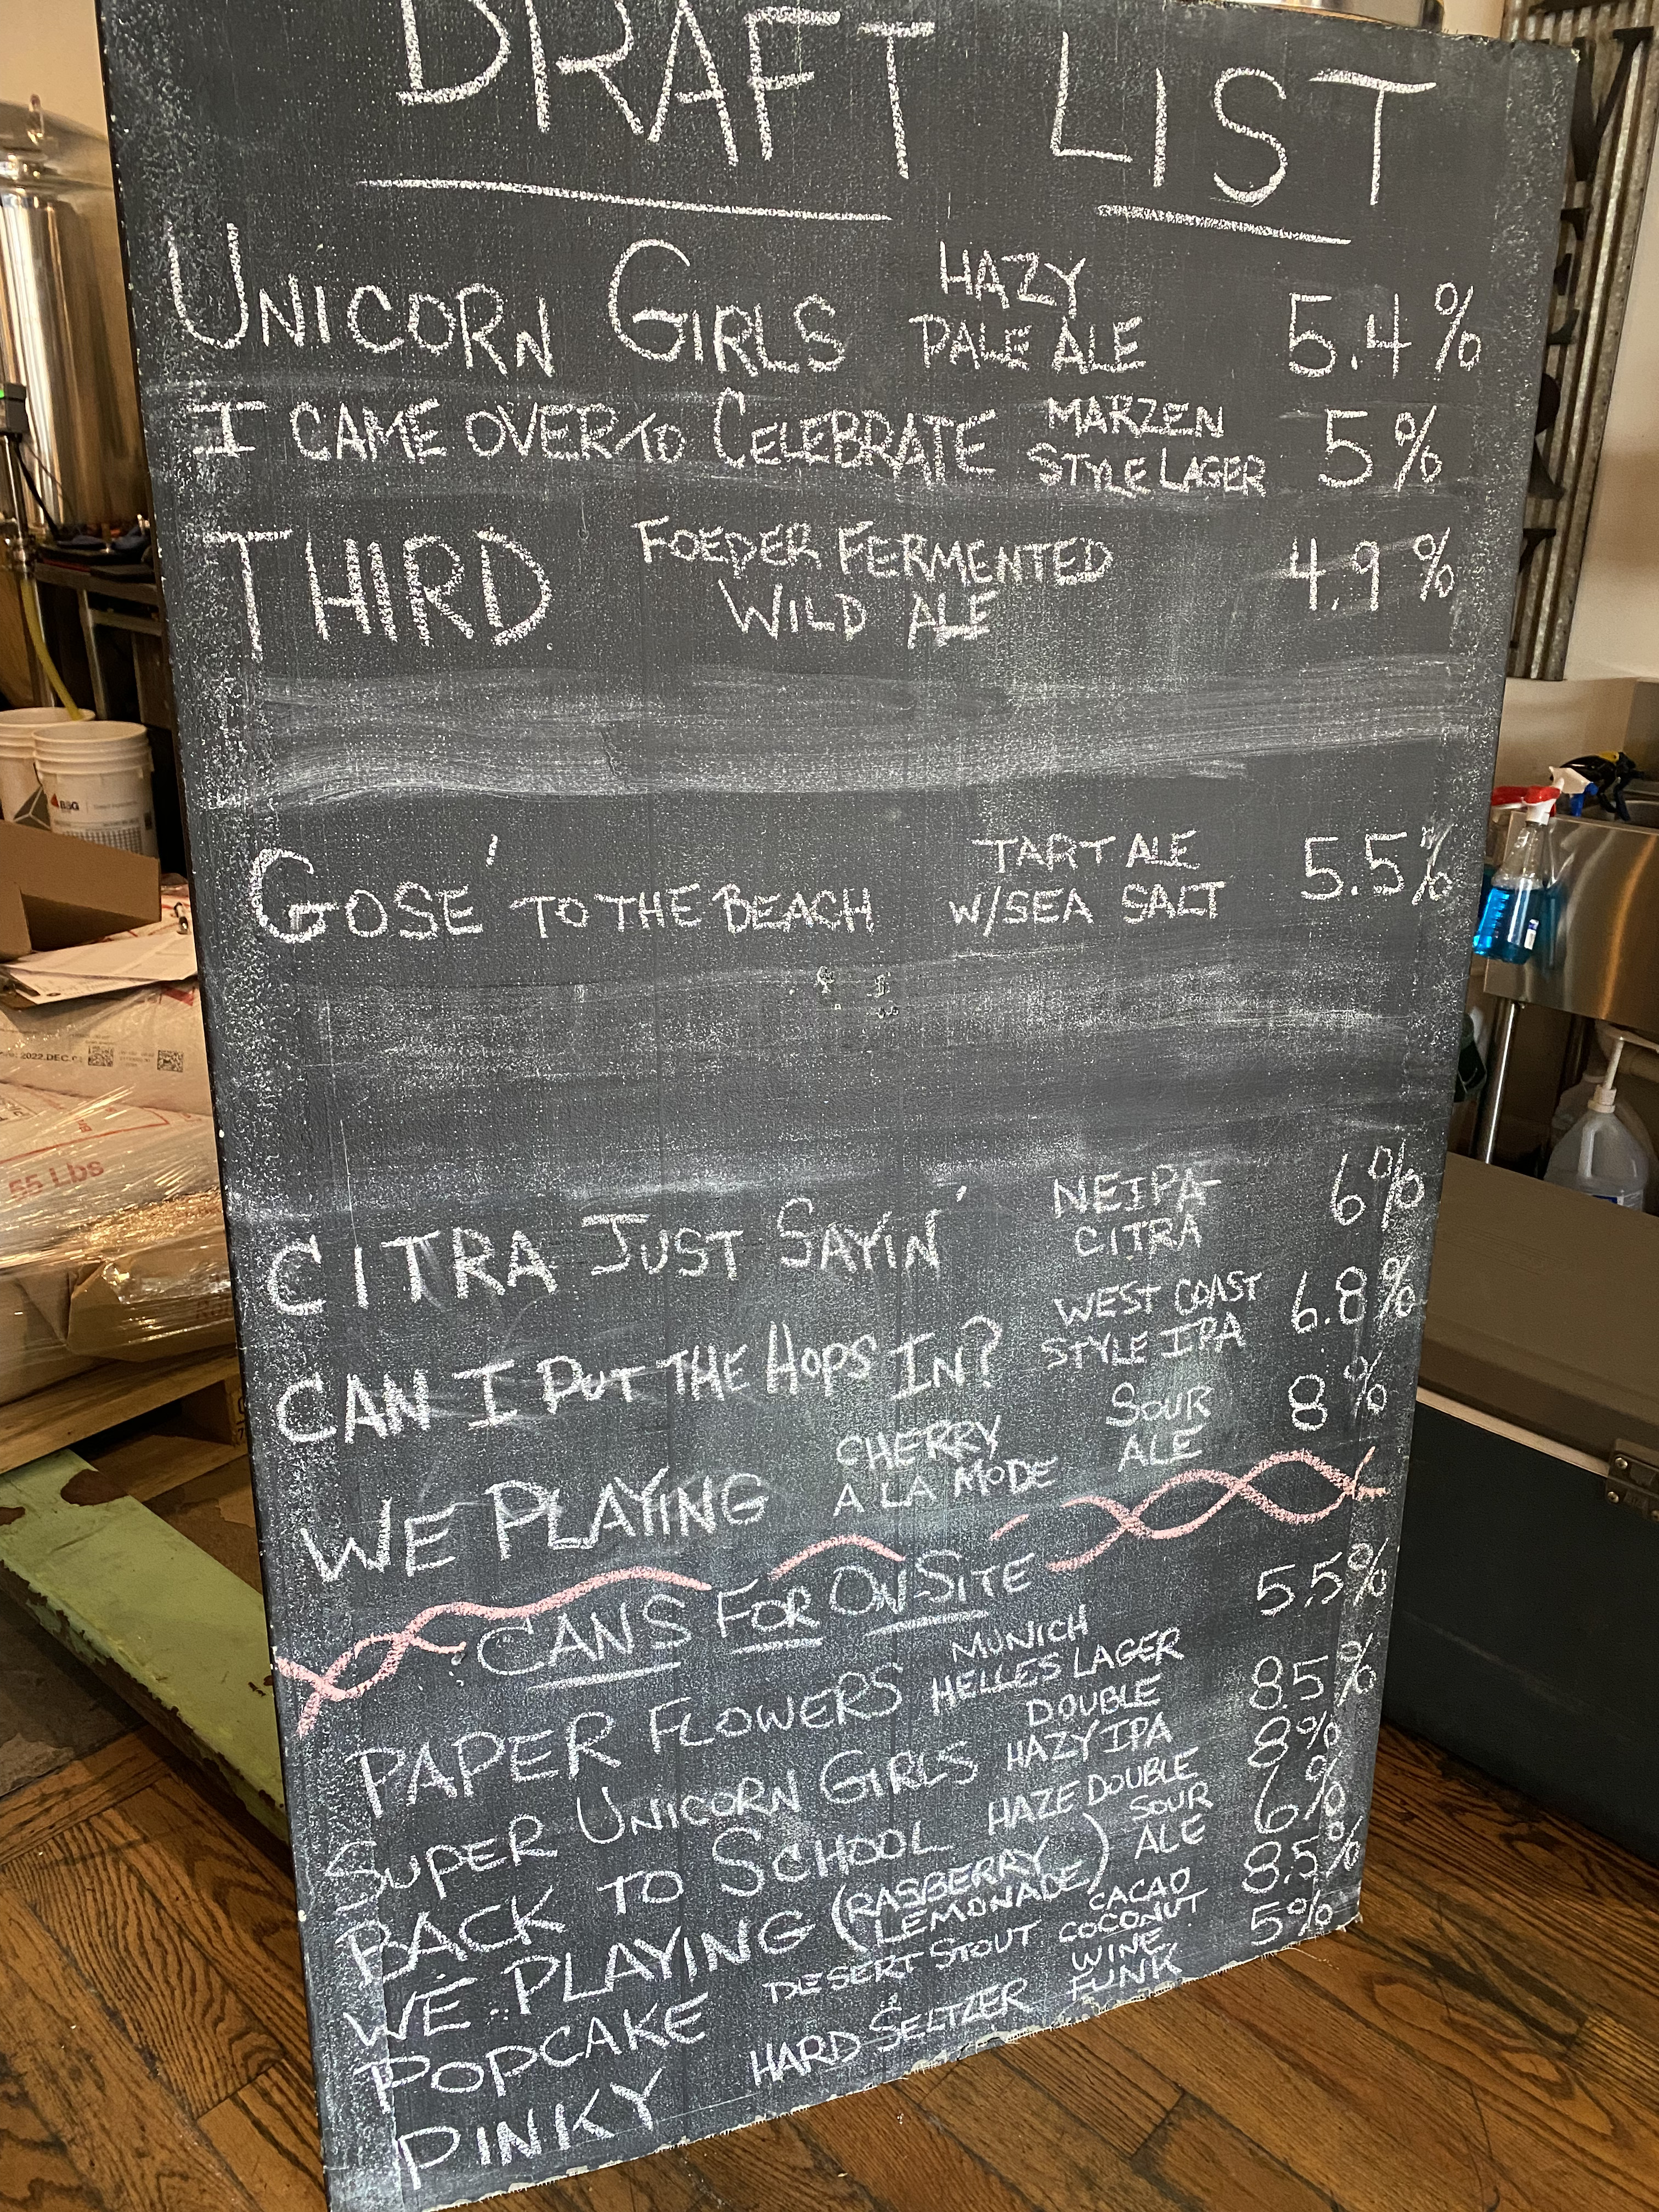 DRAFT LIST
UNICORN GIRLS HAZY PALE ALE 5.4%
I CAME OVER TO CELEBRATE MARZEN STYLE LAGER 5%
THIRD FOEDER FERMENTED WILD ALE 4.9%
GOSE' TO THE BEACH TART ALE W/SEA SALT 5.5%
CITRA JUST SAYIN' NEIPA- CITRA 6%
CAN I PUT THE HOPS IN? WEST COAST STYLE IPA 6.8%
WE PLAYING CHERRY A LA MODE SOUR ALE 8%
CANS FOR ON-SITE
PAPER FLOWERS MUNICH HELLES LAGER 5.5%
SUPER UNICORN GIRLS DOUBLE HAZY IPA 8.5%
BACK TO SCHOOL HAZE DOUBLE 8%
WE PLAYING (RASBERRY LEMONADE) SOUR ALE 6%
POPCAKE DESERT STOUT CACAO COCONUT 8.5%
PINKY HARD SELTZER WINE FUNK 5%
BSG
2022.DEC.
55 Lbs